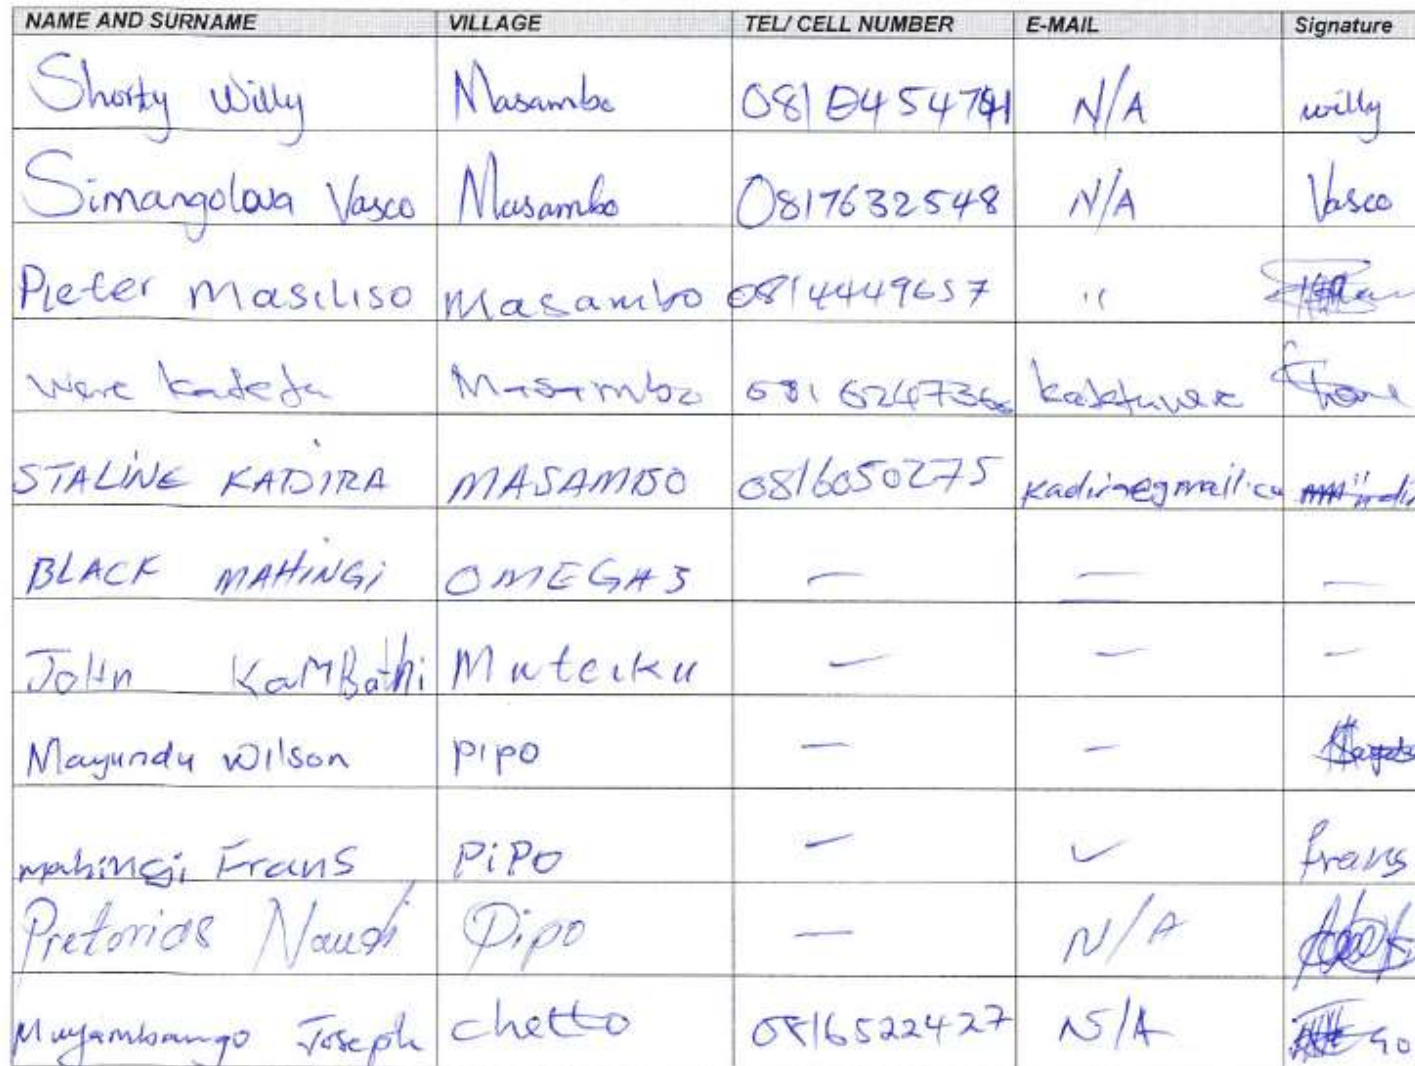 NAME AND SURNAME VILLAGE TEL/ CELL NUMBER E-MAIL Signature
Shorty Willy Masambo N/A willy
Simangolwa Vasco Masambo 0817632548 N/A Vasco
Pieter Masiliso Masambo 0814449657 "
Were Kadetu Masambo
STALINE KADIRA MASAMBO 0816050275
BLACK MAHINGi OMEGA 3 — — —
JoHn KaMBathi Muteiku — — —
Mayundu Wilson PIPO — —
mahingi Frans PiPO — frans
Pretorios Naudi Pipo — N/A
Muyambango Joseph chetto 0816522427 N/A